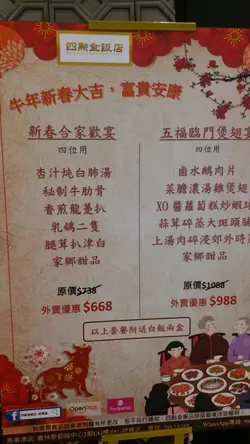 四熙金飯店
牛年新春大吉，富貴安康
新春合家歡宴
四位用
杏汁炖白肺湯
秘制牛肋骨
香煎龍躉扒
乳鴿二隻
腿茸扒津白
家鄉甜品
原價$738
外賣優惠 $668
五福臨門煲翅宴
四位用
鹵水鵝肉片
菜膽濃湯雞煲翅
XO醬蘿蔔糕炒蝦球
蒜茸碎蒸大斑頭腩
上湯肉碎浸郊外時蔬
家鄉甜品
原價$1088
外賣優惠 $988
以上套餐附送白飯兩盒
OpenRice
foodpanda